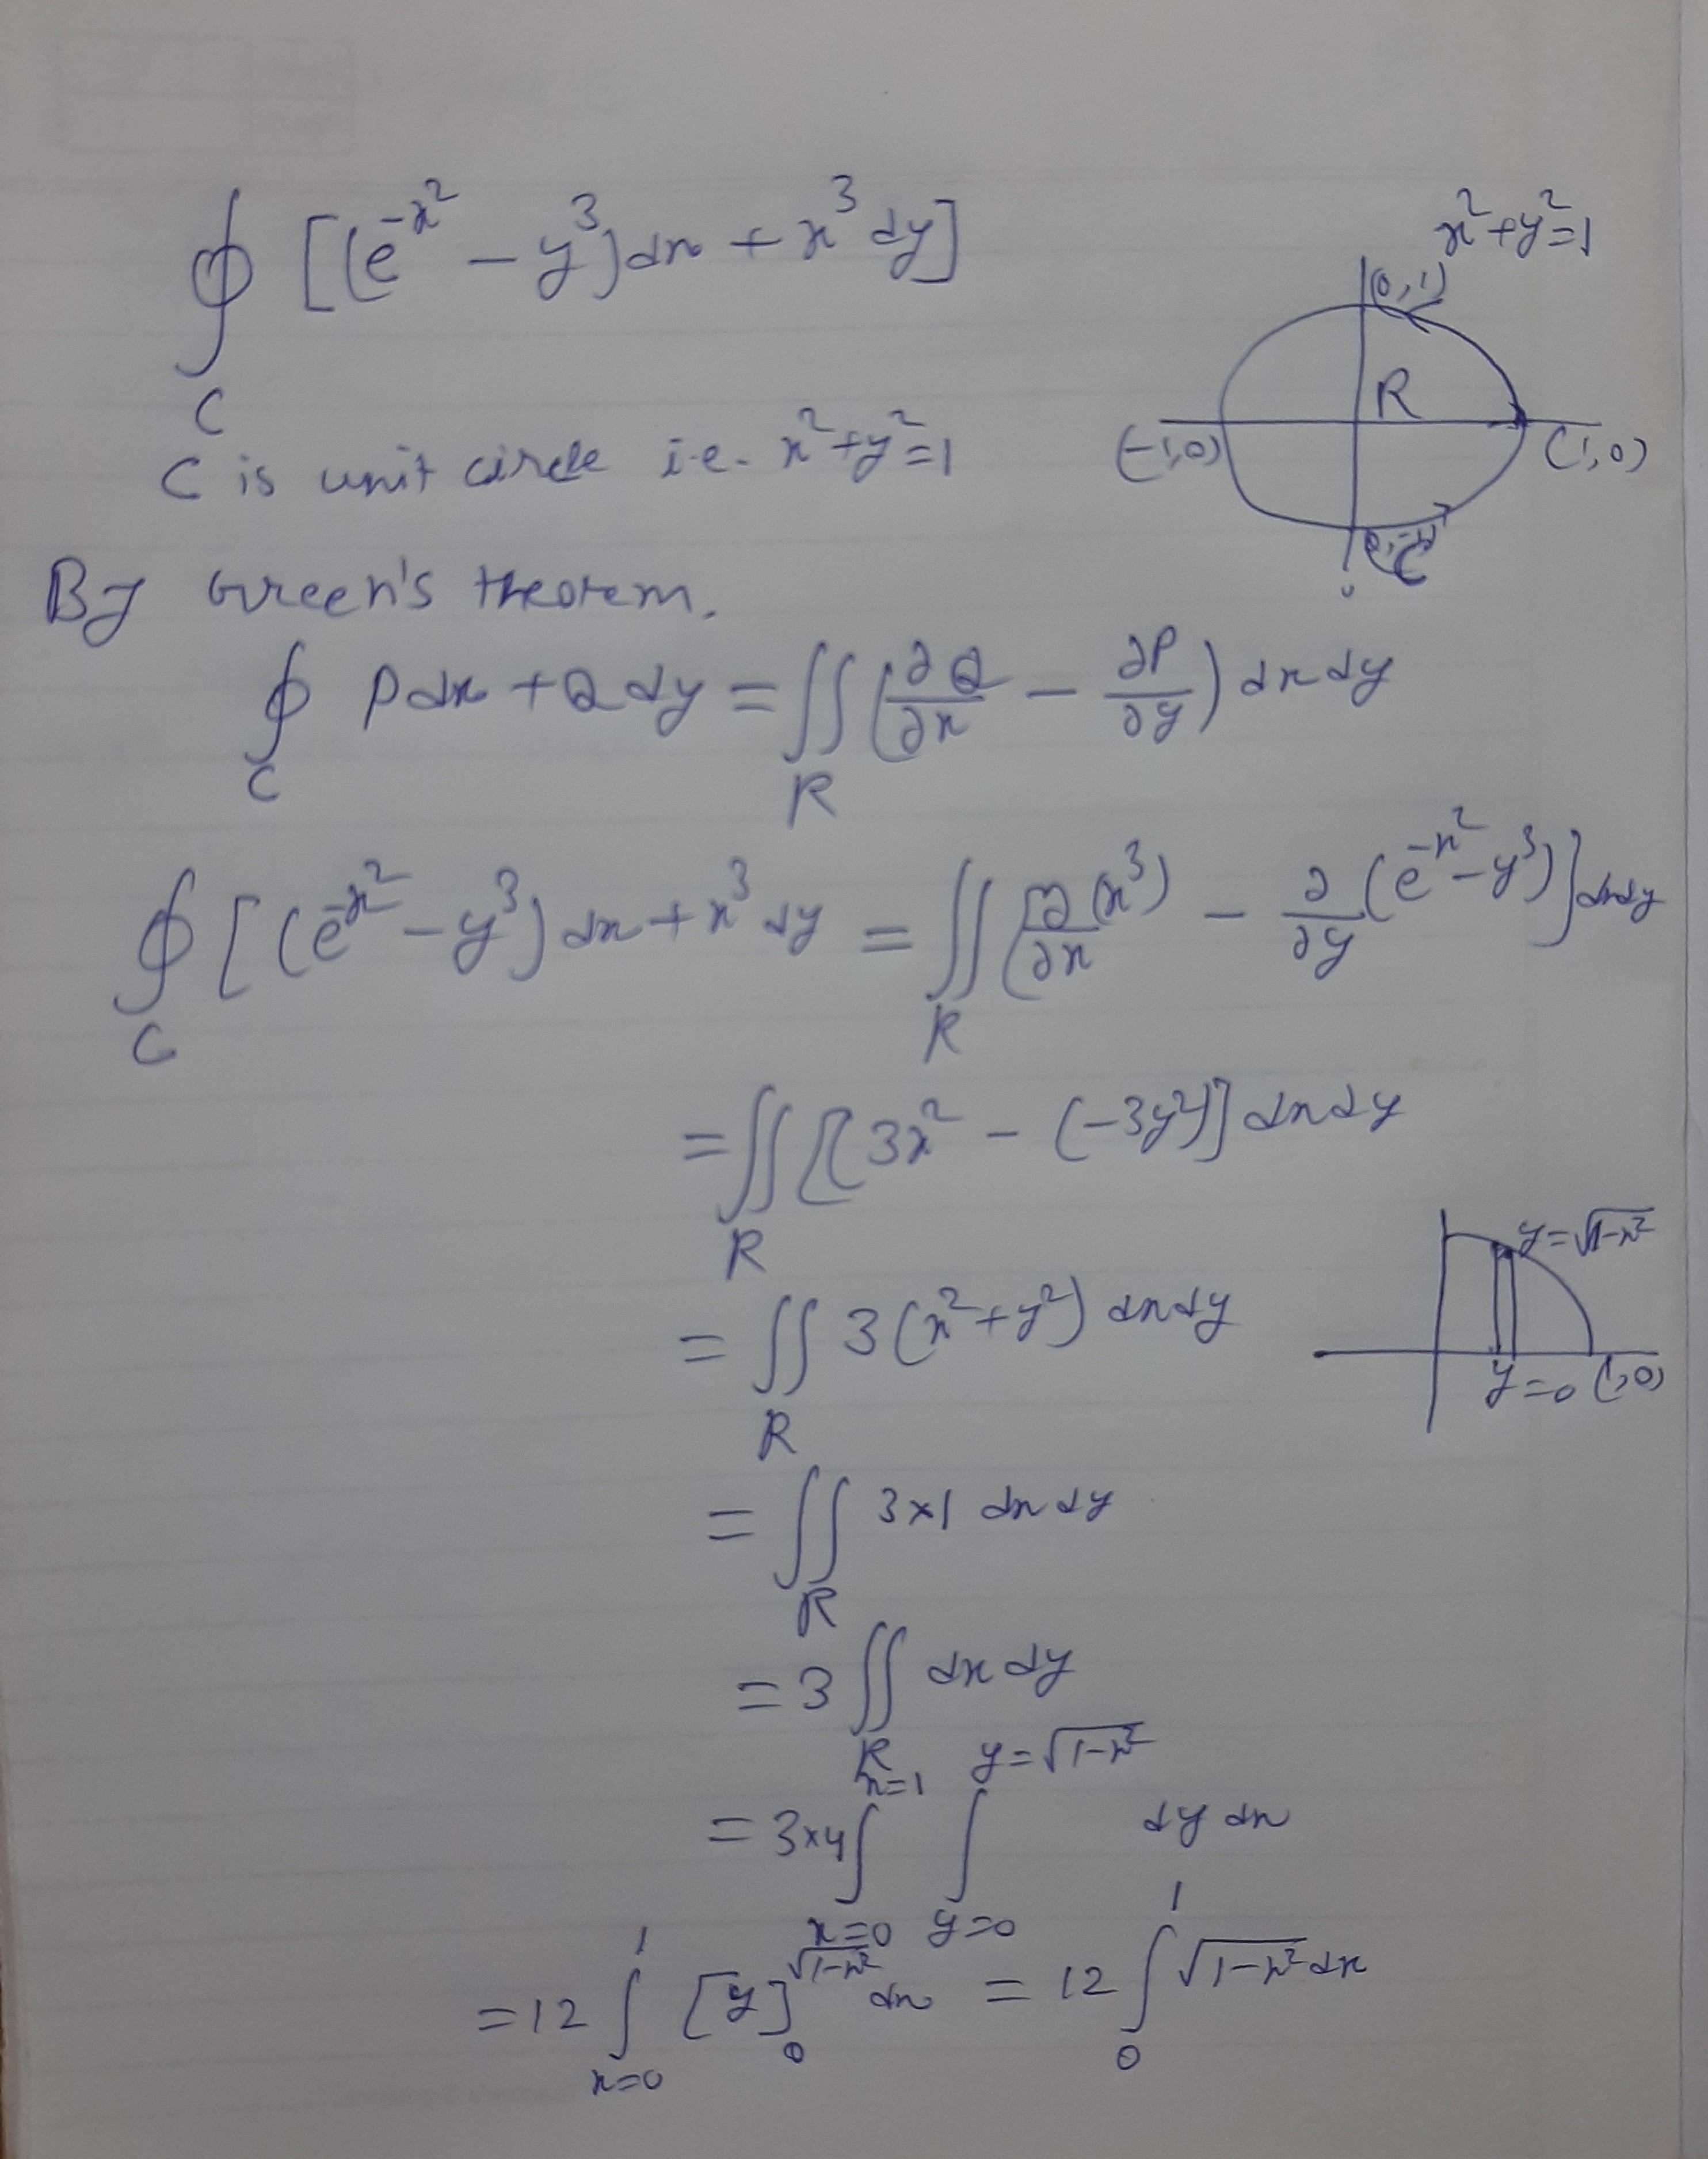 ∮ [(e^{-x^2} - y^3)dx + x^3 dy]
C
x^2+y^2=1
(0,1)
R
(-1,0)
(1,0)
C
C is unit circle i.e. x^2+y^2=1
By Green's theorem.
∮_C Pdx + Qdy = ∬_R (∂Q/∂x - ∂P/∂y) dxdy
∮_C [(e^{-x^2} - y^3) dx + x^3 dy = ∬_R [∂/∂x (x^3) - ∂/∂y (e^{-x^2} - y^3)] dxdy
= ∬_R [3x^2 - (-3y^2)] dxdy
y=√1-x^2
= ∬_R 3(x^2+y^2) dxdy
y=0 (1,0)
= ∬_R 3×1 dxdy
= 3 ∬_R dxdy
= 3×4 ∫_{x=0}^{x=1} ∫_{y=0}^{y=√1-x^2} dy dx
= 12 ∫_{x=0}^{1} [y]_0^{√1-x^2} dx = 12 ∫_0^1 √1-x^2 dx